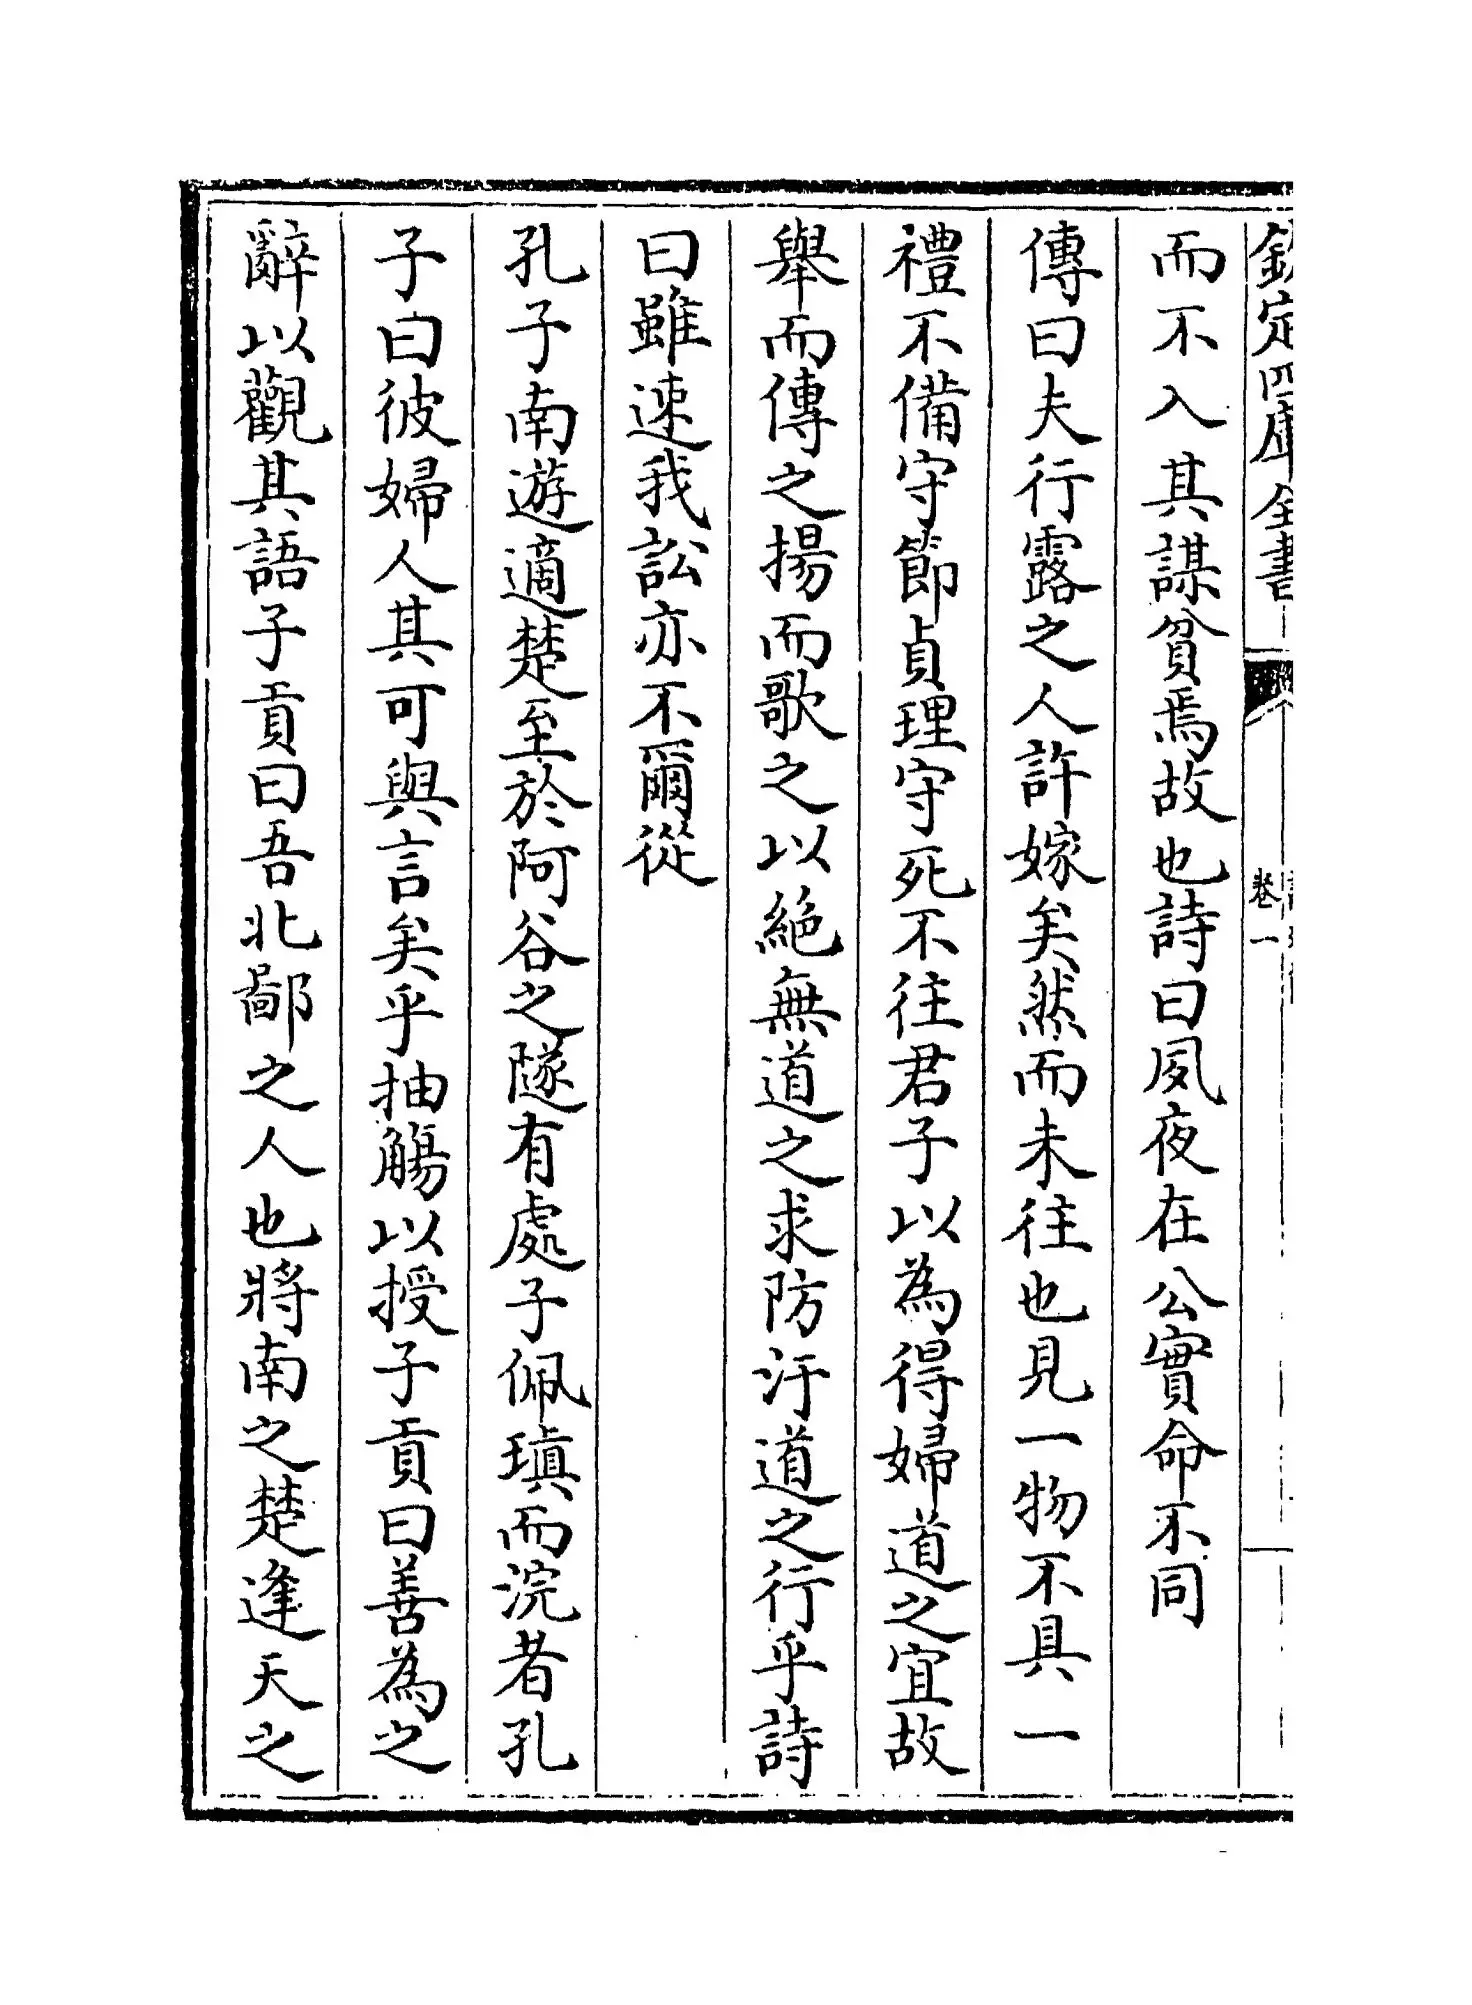 欽定四庫全書
卷一
而不入其謀貧焉故也詩曰夙夜在公實命不同
傳曰夫行露之人許嫁矣然而未往也見一物不具一
禮不備守節貞理守死不往君子以為得婦道之宜故
舉而傳之揚而歌之以絶無道之求防汙道之行乎詩
曰雖速我訟亦不爾從
孔子南遊適楚至於阿谷之隧有處子佩瑱而浣者孔
子曰彼婦人其可與言矣乎抽觴以授子貢曰善為之
辭以觀其語子貢曰吾北鄙之人也將南之楚逢天之